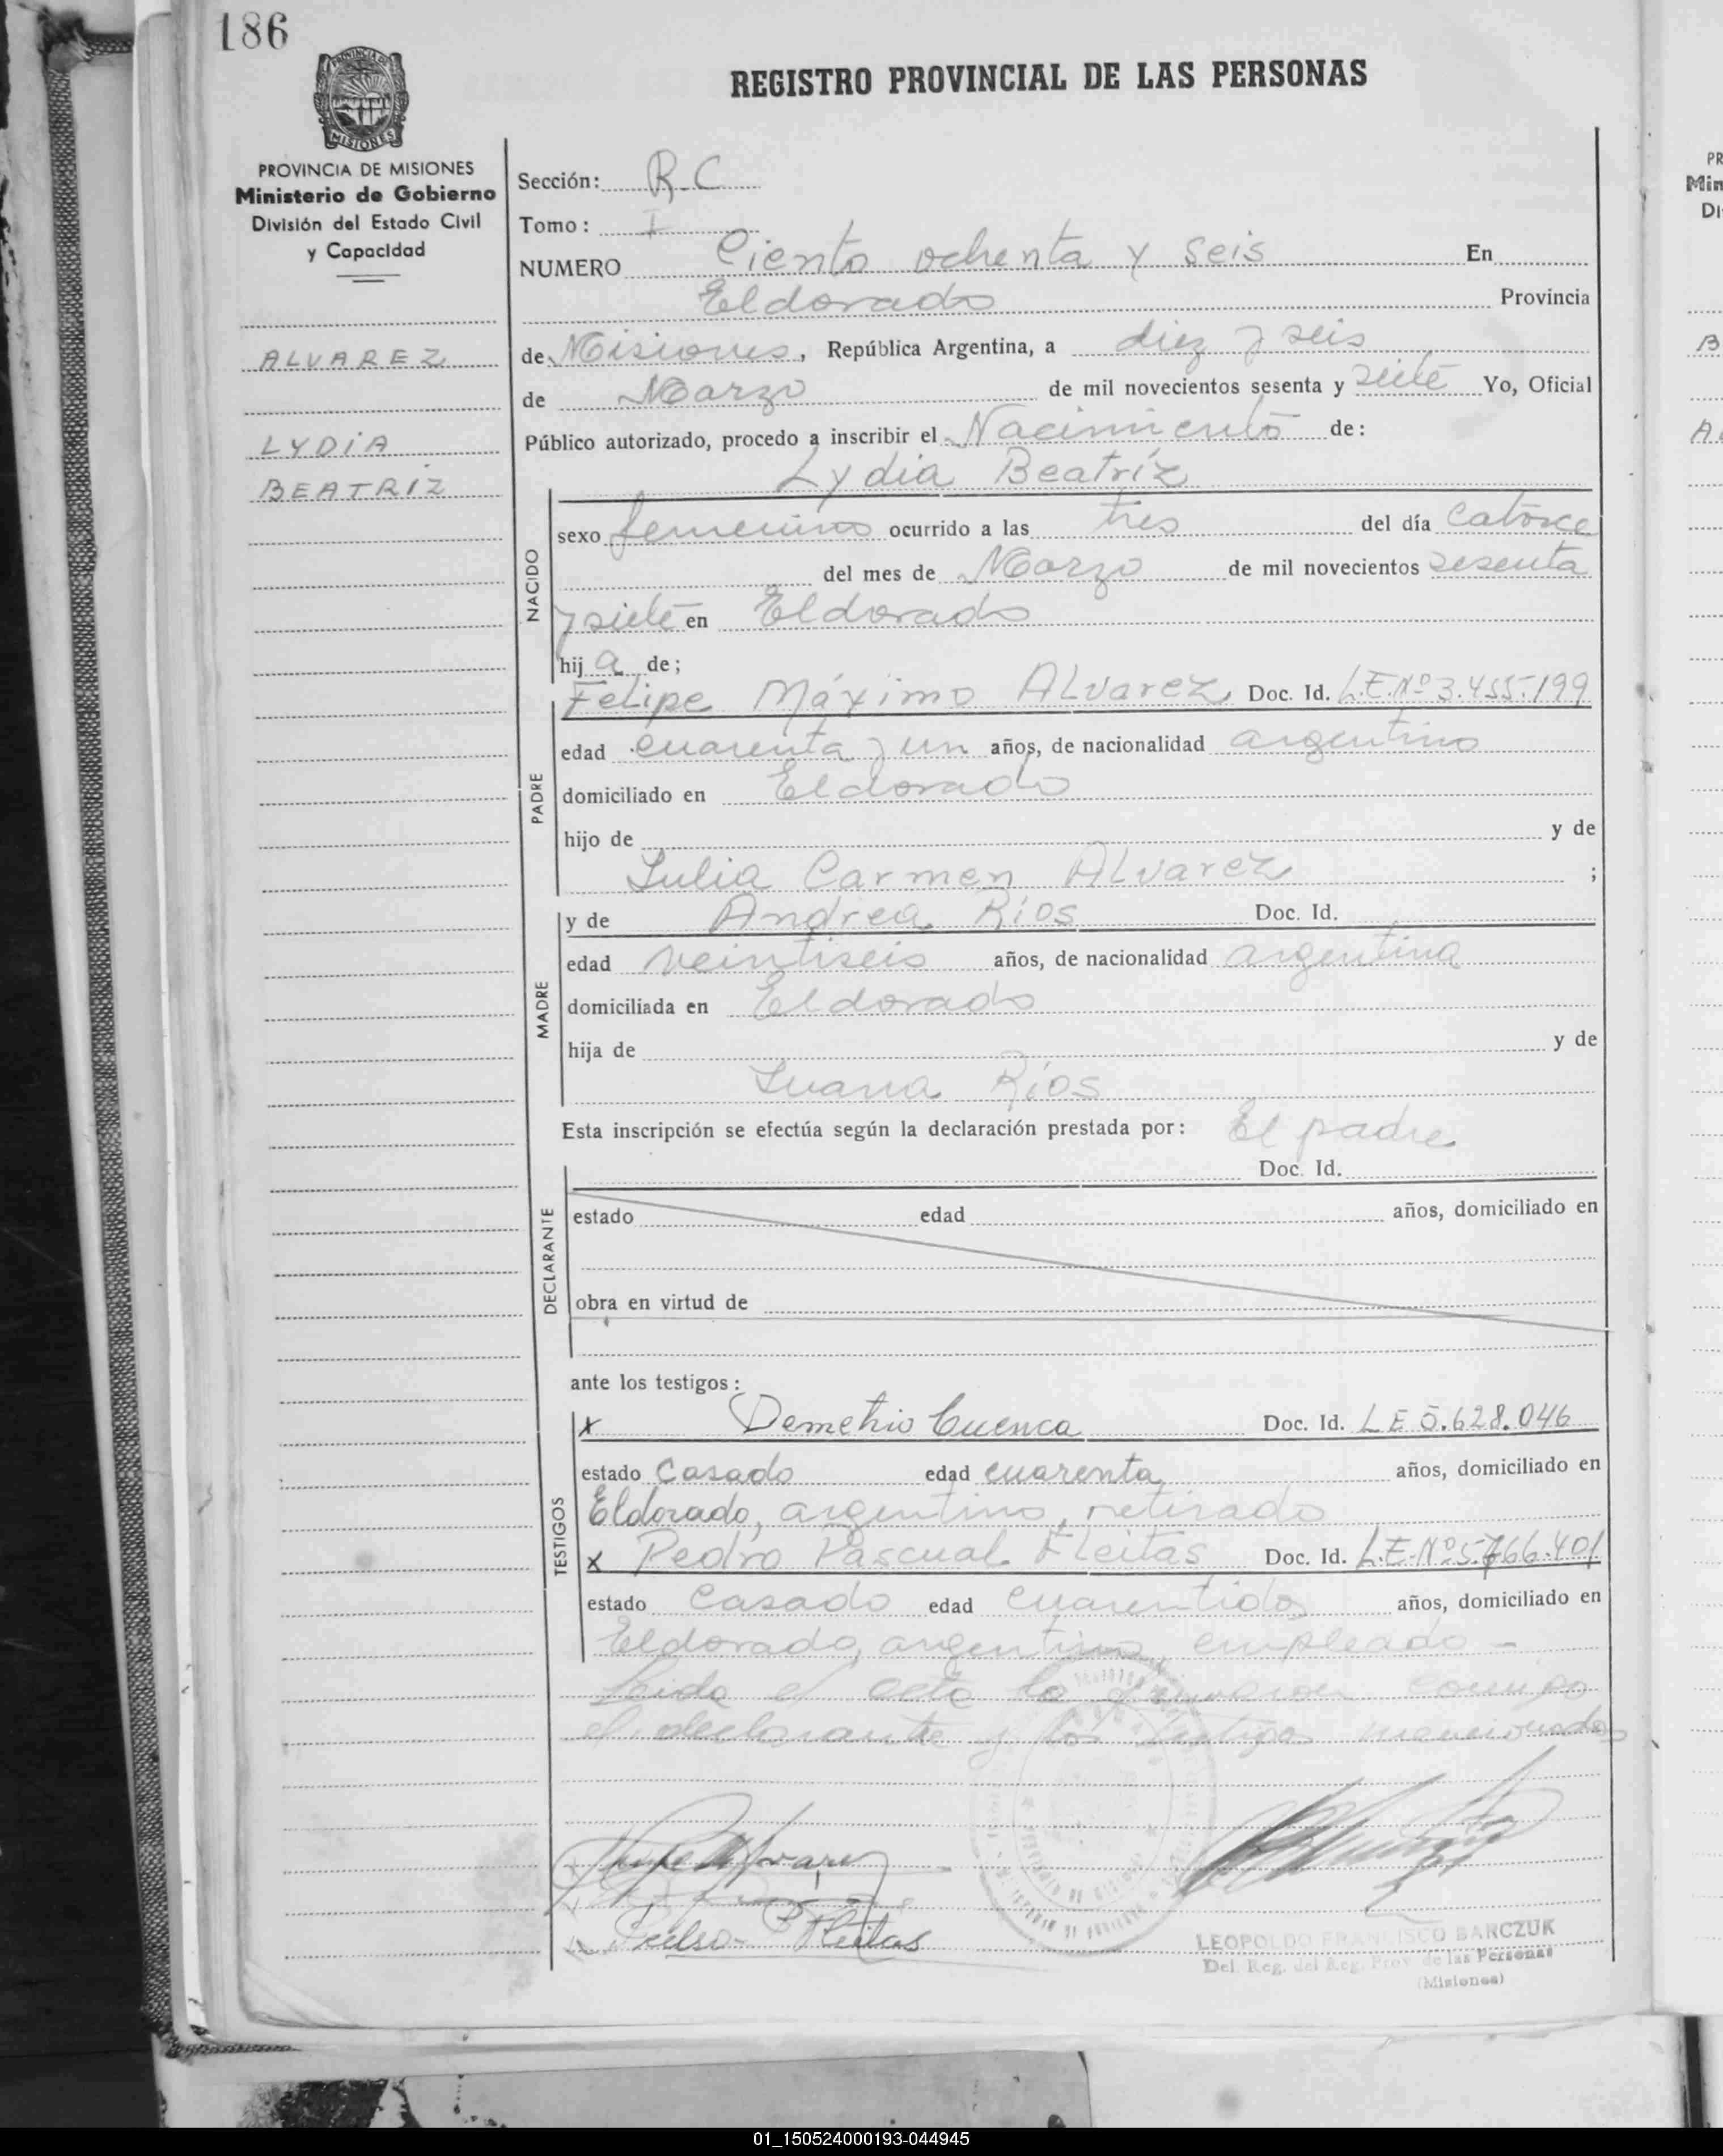 186
PROVINCIA DE
MISIONES
REGISTRO PROVINCIAL DE LAS PERSONAS
PROVINCIA DE MISIONES
Ministerio de Gobierno
División del Estado Civil
y Capacidad
ALVAREZ
LYDIA
BEATRIZ
Sección: R.C
Tomo: I
NUMERO Ciento ochenta y seis En
Eldorado Provincia
de Misiones, República Argentina, a diez y seis
de Marzo de mil novecientos sesenta y siete Yo, Oficial
Público autorizado, procedo a inscribir el Nacimiento de:
Lydia Beatríz
NACIDO
sexo femenino ocurrido a las tres del día catorce
del mes de Marzo de mil novecientos sesenta
y siete en Eldorado
hij a de;
PADRE
Felipe Máximo Alvarez Doc. Id. L.E.Nº3.455.199
edad cuarenta y un años, de nacionalidad argentino
domiciliado en Eldorado
hijo de y de
Julia Carmen Alvarez ;
MADRE
y de Andrea Ríos Doc. Id.
edad veintiseis años, de nacionalidad argentina
domiciliada en Eldorado
hija de y de
Juana Ríos
Esta inscripción se efectúa según la declaración prestada por: El padre
Doc. Id.
DECLARANTE
estado edad años, domiciliado en
obra en virtud de
ante los testigos:
TESTIGOS
x Demetrio Cuenca Doc. Id. L E 5.628.046
estado casado edad cuarenta años, domiciliado en
Eldorado, argentino, retirado
x Pedro Pascual Fleitas Doc. Id. L.E.Nº5.766.401
estado casado edad cuarentidos años, domiciliado en
Eldorado, argentino, empleado -
Leida el acta la firmaron conmigo
el declarante y los testigos mencionados
Fleitas
LEOPOLDO FRANCISCO BARCZUK
Del. Reg. del Reg. Prov. de las Personas
(Misiones)
PR
Min
Di
B
A
01_150524000193-044945